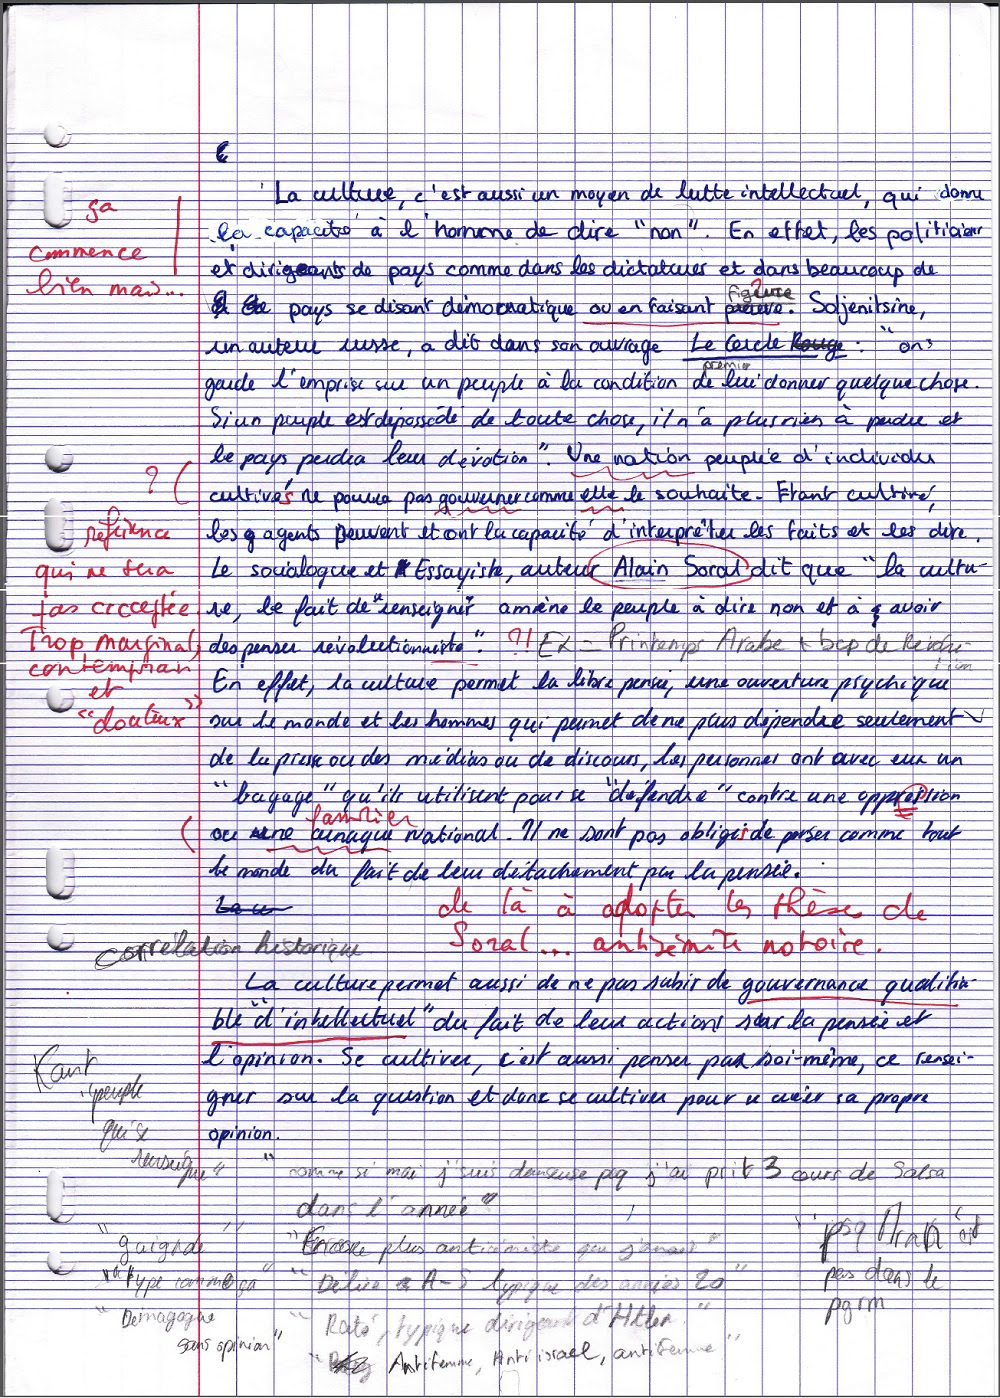 La culture, c'est aussi un moyen de lutte intellectuel, qui donne
la capacité à l'homme de dire "non". En effet, les politicien
et dirigeants de pays comme dans les dictatures et dans beaucoup de
pays se disant démocratique ou en faisant figure preuve. Soljenitsine,
un auteur russe, a dit dans son ouvrage Le Cercle Rouge premier : "on
garde l'emprise sur un peuple à la condition de lui donner quelque chose.
Si un peuple est dépossédé de toute chose, il n'a plus rien à perdre et
le pays perdra leur dévotion". Une nation peuplée d'individu
cultivés ne pourra pas gouverner comme elle le souhaite. Etant cultivé,
les agents peuvent et ont la capacité d'interpréter les faits et les dire.
Le socialogue et Essayiste, auteur Alain Soral dit que "la cultu-
re, le fait de "renseigner" amène le peuple à dire non et à avoir
des penser révolutionniste". ?! Ex = Printemps Arabe + bcp de Révolu-
tion
En effet, la culture permet la libre pensée, une ouverture psychique
sur le monde et les hommes qui permet de ne plus dépendre seulement
de la presse ou des médias ou de discours, les personnes ont avec eux un
"bagage" qu'ils utilisent pour se "défendre" contre une oppression
familier
ou une arnaque national. Il ne sont pas obligés de penser comme tout
le monde du fait de leur détachement par la pensée.
de là à adopter les thèses de
Soral... antisémite notoire.
Corrélation historique
La culture permet aussi de ne pas subir de gouvernance qualifia-
ble "d'intellectuel" du fait de leur actions sur la pensée et
l'opinion. Se cultiver, c'est aussi penser par soi-même, ce rensei-
gner sur la question et donc se cultiver pour se créer sa propre
opinion.
ça
commence
bien mais...
?
référence
qui ne sera
pas acceptée
Trop marginal,
contemporain
et
"douteux"
Kant
"peuple
qui se
renseigne"
"comme si moi j'suis danseuse pcq j'ai prit 3 cours de Salsa
dans l'année"
"Encore plus
"Délire A-S typique des années 20"
"Raté, typique dirigeant d'Hitler"
Antifemme, Anti israel, antifemme"
"type comme ça"
"Démagogue
sans opinion"
pas dans le
pgrm